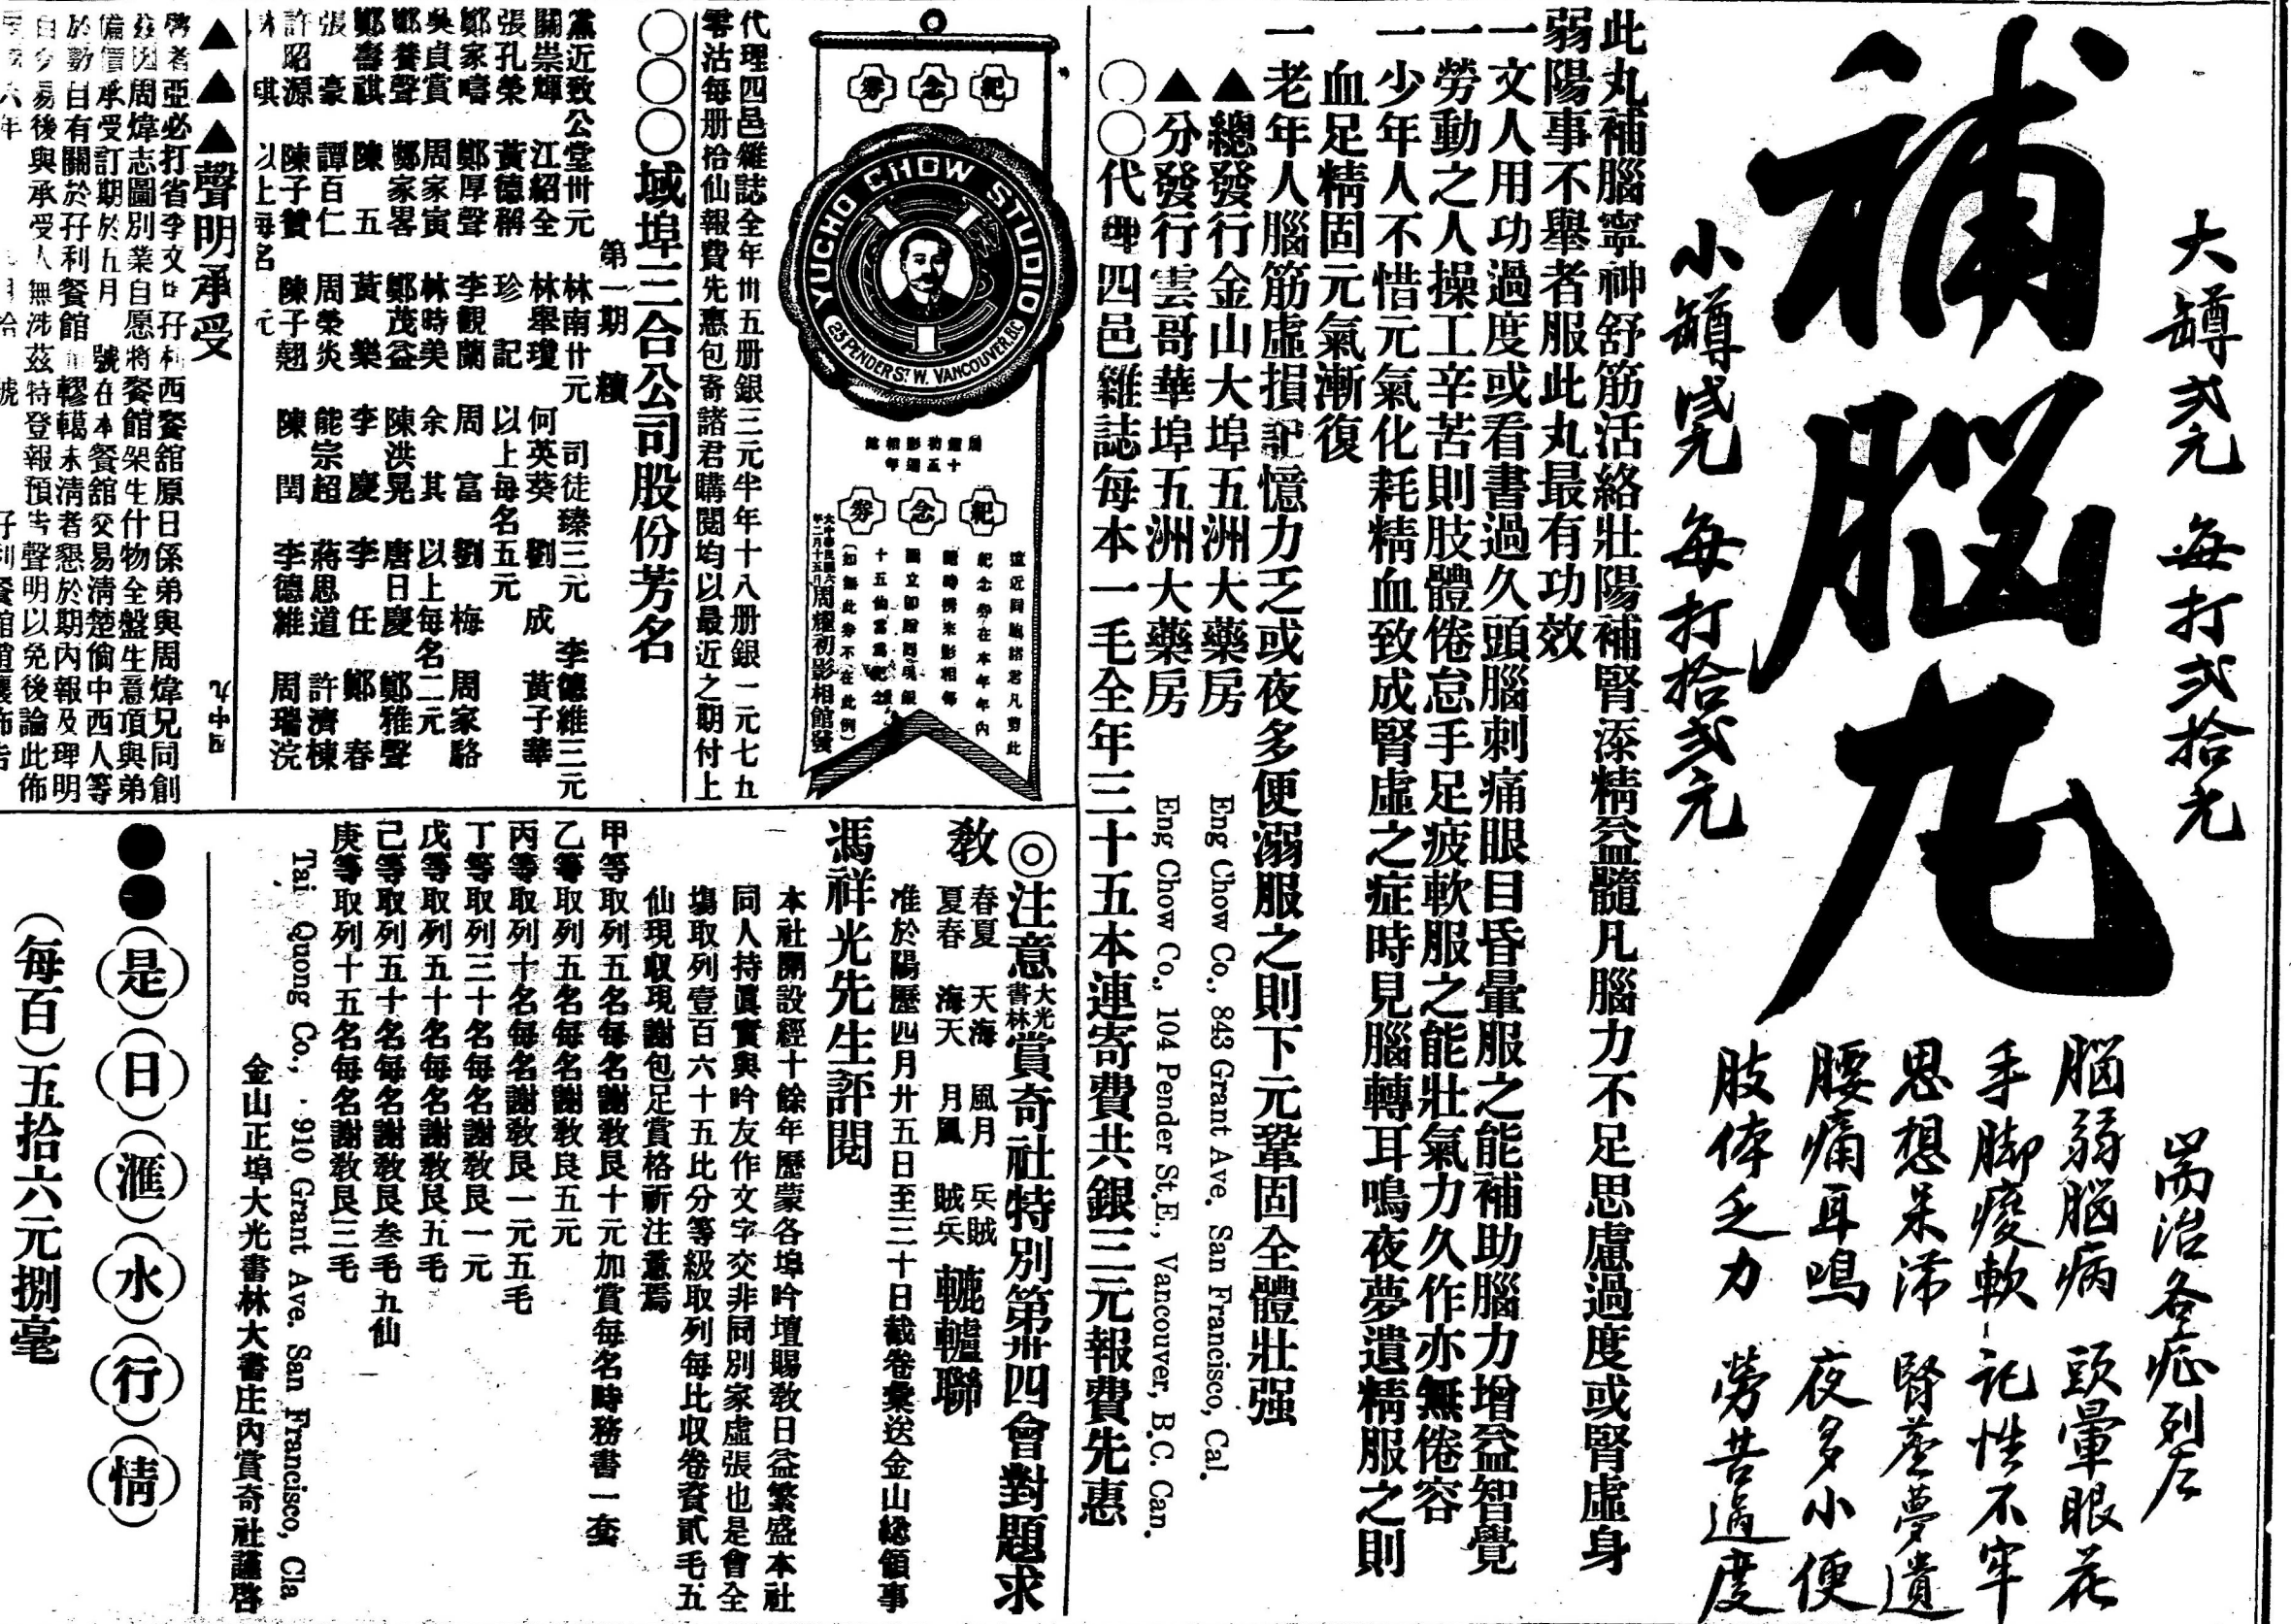 補腦丸
大罇弍元 每打弍拾元
小罇壹元 每打拾弍元
耑治各症列左
腦弱腦病 頭暈眼花
手脚痠軟 記性不牢
思想呆滯 腎虧夢遺
腰痛耳鳴 夜多小便
肢体乏力 勞苦過度
此丸補腦寧神舒筋活絡壯陽補腎添精益髓凡腦力不足思慮過度或腎虛身
弱陽事不舉者服此丸最有功效
一文人用功過度或看書過久頭腦刺痛眼目昏暈服之能補助腦力增益智覺
一勞動之人操工辛苦則肢體倦怠手足疲軟服之能壯氣力久作亦無倦容
一少年人不惜元氣化耗精血致成腎虛之症時見腦轉耳鳴夜夢遺精服之則
血足精固元氣漸復
一老年人腦筋虛損記憶力乏或夜多便溺服之則下元鞏固全體壯强
▲總發行金山大埠五洲大藥房 Eng Chow Co., 843 Grant Ave. San Francisco, Cal.
▲分發行雲哥華埠五洲大藥房 Eng Chow Co., 104 Pender St. E., Vancouver, B.C. Can.
〇〇代理四邑雜誌每本一毛全年三十五本連寄費共銀三元報費先惠
紀念券
YUCHO CHOW STUDIO
25 PENDER ST W. VANCOUVER. B.C.
紀念券
遠近同胞諸君凡剪此
紀念券在本年年內
隨時携來影相每
國立即贈回現銀
十五仙當爲紀念
(如無此券不在此例)
周耀初影相館發
代理四邑雜誌全年卅五册銀三元半年十八册銀一元七九
零沽每册拾仙報費先惠包寄諸君購閱均以最近之期付上
〇〇〇域埠三合公司股份芳名
第一期 續
黨近致公堂卅元 林南廿元 司徒臻三元 李德維三元
關崇輝 江紹全 林舉瓊 何英葵 劉成 黃子華
張孔榮 黃德稱 珍記 以上每名五元
鄭家嚋 鄭厚聲 李觀蘭 周富 劉梅 周家駱
吳貞賞 周家寅 林時美 余其 以上每名二元
鄭養聲 鄭家畧 鄭茂益 陳洪晃 唐日慶 鄭雅聲
鄭壽祺 陳五 黃樂 李慶 李任 鄭春
張豪 譚百仁 周榮炎 能宗超 蔣思道 許濟棟
許昭源 陳子贊 陳子翹 陳閏 李德維 周瑞浣
林琪 以上每名一元
▲▲▲聲明承受
啓者亞必打省李文 孖利西餐舘原日係弟與周煒兄同創
茲因周煒志圖別業自愿將餐館架生什物全盤生意項與弟
備價承受訂期於五月 號在本餐舘交易清楚倘中西人等
於數目有關於孖利餐館 轇轕未清者懇於期內報及理明
自今易後與承受人無涉茲特登報預告聲明以免後論此佈
◎注意 大光書林 賞奇社特別第卅四會對題求
教 春夏 天海 風月 兵賊
夏春 海天 月風 賊兵 轆轤聯
准於陽歷四月廿五日至三十日截卷彙送金山総領事
馮祥光先生評閱
本社開設經十餘年歷蒙各埠吟壇賜教日益繁盛本社
同人持眞實與吟友作文字交非同別家虛張也是會全
塲取列壹百六十五比分等級取列每比収卷資貳毛五
仙現収現謝包足賞格祈注意焉
甲等取列五名每名謝教艮十元加賞每名時務書一套
乙等取列五名每名謝教艮五元
丙等取列十名每名謝教艮一元五毛
丁等取列三十名每名謝教艮一元
戊等取列五十名每名謝教艮五毛
己等取列五十名每名謝教艮叁毛九仙
庚等取列十五名每名謝教艮三毛
Tai Quong Co., 910 Grant Ave. San Francisco, Cla
金山正埠大光書林大書庄內賞奇社謹啓
●●是日滙水行情
(每百)五拾六元捌毫